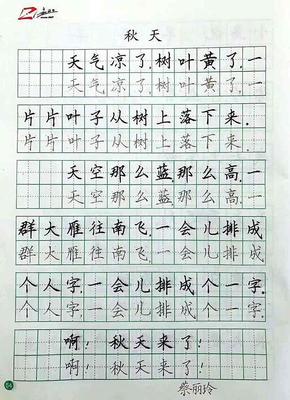 秋天
天气凉了,树叶黄了,一
天气凉了,树叶黄了,一
片片叶子从树上落下来.
片片叶子从树上落下来.
天空那么蓝,那么高.一
天空那么蓝,那么高.一
群大雁往南飞,一会儿排成
群大雁往南飞,一会儿排成
个人字,一会儿排成个一字.
个人字,一会儿排成个一字.
啊!秋天来了!
啊!秋天来了!
蔡丽玲